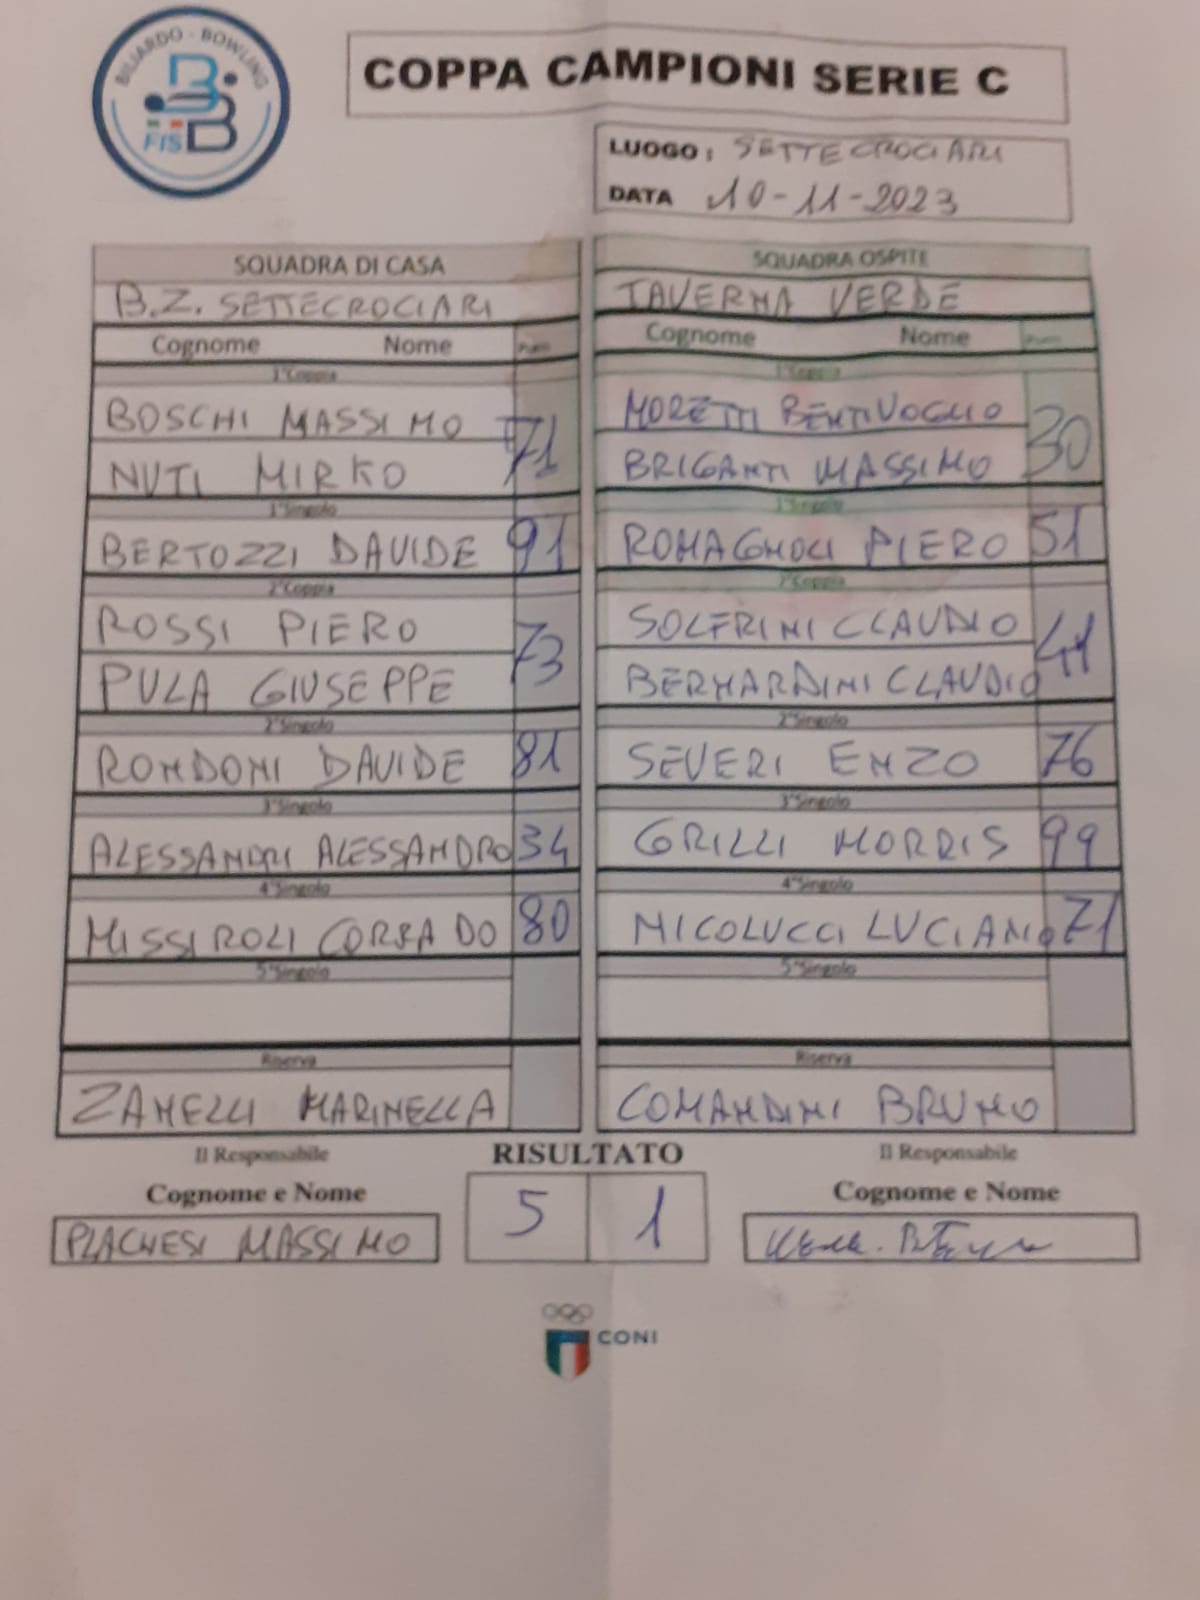 BILIARDO - BOWLING
FISBB
COPPA CAMPIONI SERIE C
LUOGO: SETTECROCIARI
DATA 10-11-2023
SQUADRA DI CASA SQUADRA OSPITE
B.Z. SETTECROCIARI TAVERNA VERDE
Cognome Nome Punti Cognome Nome Punti
1°Coppia 1°Coppia
BOSCHI MASSIMO 71 MORETTI BENTIVOGLIO 30
NUTI MIRKO BRIGANTI MASSIMO
1°Singolo 1°Singolo
BERTOZZI DAVIDE 91 ROMAGNOLI PIERO 51
2°Coppia 2°Coppia
ROSSI PIERO 73 SOLFRINI CLAUDIO 41
PULA GIUSEPPE BERNARDINI CLAUDIO
2°Singolo 2°Singolo
RONDONI DAVIDE 81 SEVERI ENZO 76
3°Singolo 3°Singolo
ALESSANDRI ALESSANDRO 34 GRILLI MORRIS 99
4°Singolo 4°Singolo
MISSIROLI CORRADO 80 NICOLUCCI LUCIANO 71
5°Singolo 5°Singolo
Riserva Riserva
ZANELLI MARINELLA COMANDINI BRUNO
Il Responsabile RISULTATO Il Responsabile
Cognome e Nome 5 1 Cognome e Nome
PLACHESI MASSIMO
CONI